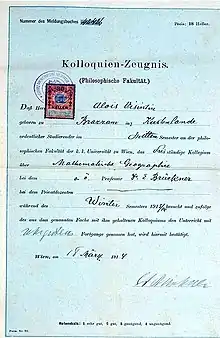 Nummer des Meldungsbuches
Preis: 18 Heller.
Kolloquien-Zeugnis.
(Philosophische Fakultät.)
Daß Herr Alois
geboren zu in Küstenlande
ordentlicher Studierender im Semester an der philo-
sophischen Fakultät der k. k. Universität zu Wien, das stündige Kollegium
über Mathematische Geographie
bei dem a. ö. Professor Dr. E. Brückner
bei dem Privatdozenten
während des Winter Semesters 1913/14 besucht und zufolge
des aus dem genannten Fache mit ihm gehaltenen Kolloquiums den Unterricht mit
Fortgange genossen hat, wird hiermit bestätigt.
Wien, am 18 März 1914
Notenskala: 1 sehr gut, 2 gut, 3 genügend, 4 ungenügend.